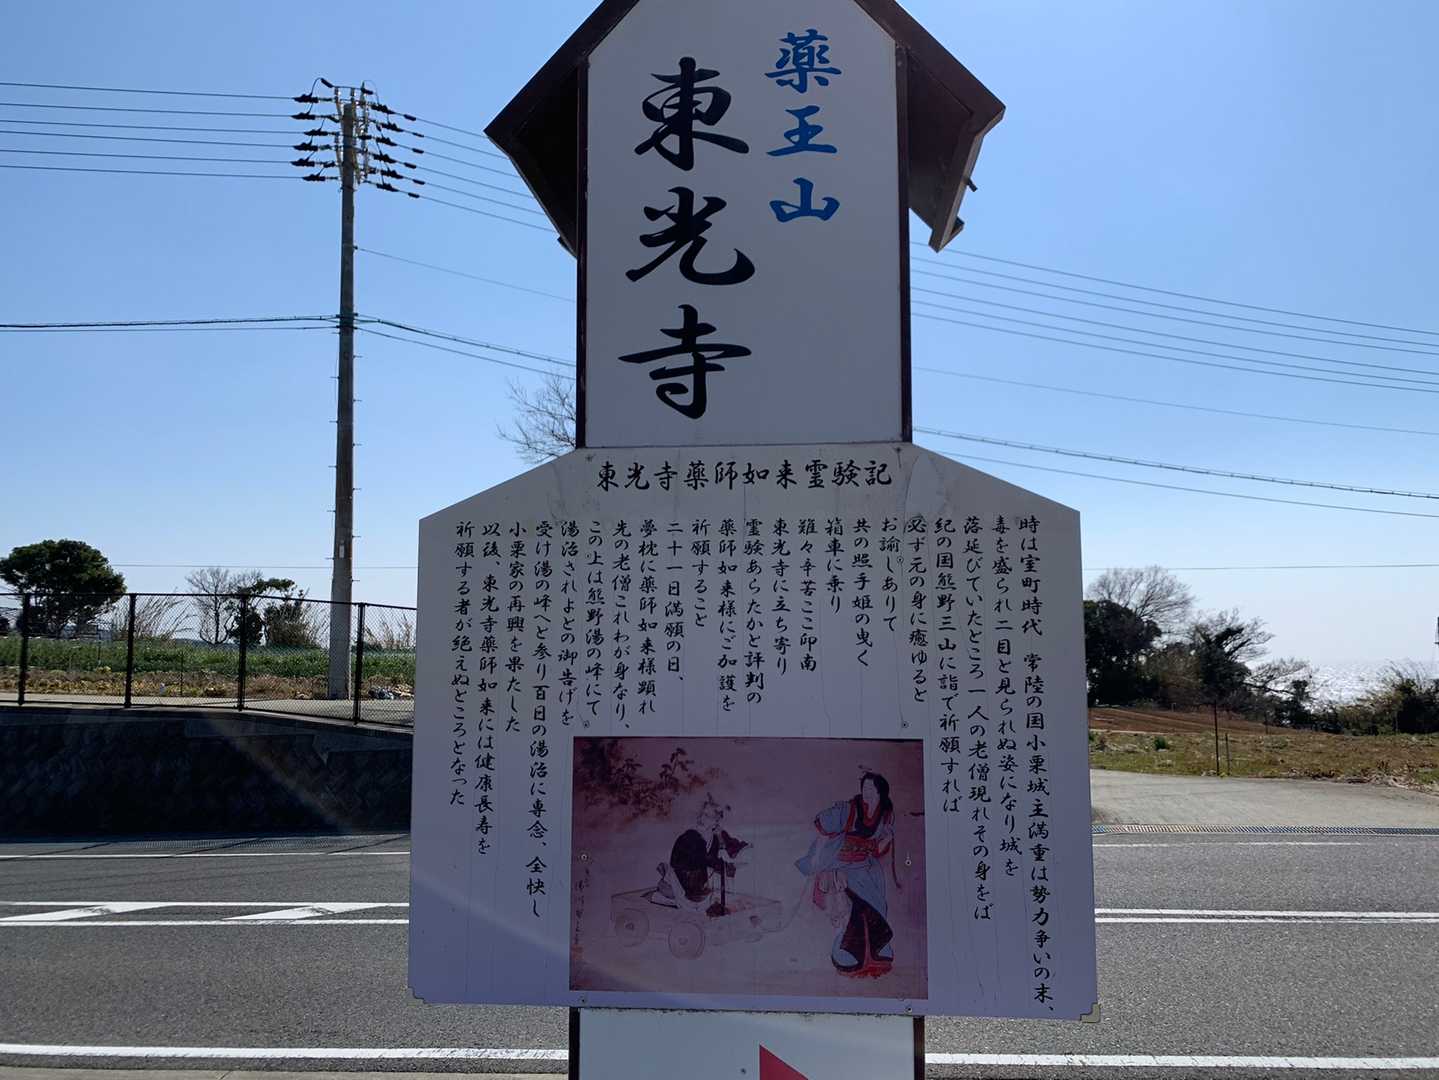 薬王山
東光寺
東光寺薬師如来霊験記
時は室町時代　常陸の国小栗城主満重は勢力争いの末、
毒を盛られ二目と見られぬ姿になり城を
落延びていたところ一人の老僧現れその身をば
紀の国熊野三山に詣で祈願すれば
必ず元の身に癒ゆると
お諭しありて
共の照手姫の曳く
箱車に乗り
難々辛苦ここ印南
東光寺に立ち寄り
霊験あらたかと評判の
薬師如来様にご加護を
祈願すること
二十一日満願の日、
夢枕に薬師如来様顕れ
先の老僧これわが身なり、
この上は熊野湯の峰にて
湯治されよとの御告げを
受け湯の峰へと参り百日の湯治に専念、全快し
小栗家の再興を果たした
以後、東光寺薬師如来には健康長寿を
祈願する者が絶えぬところとなった